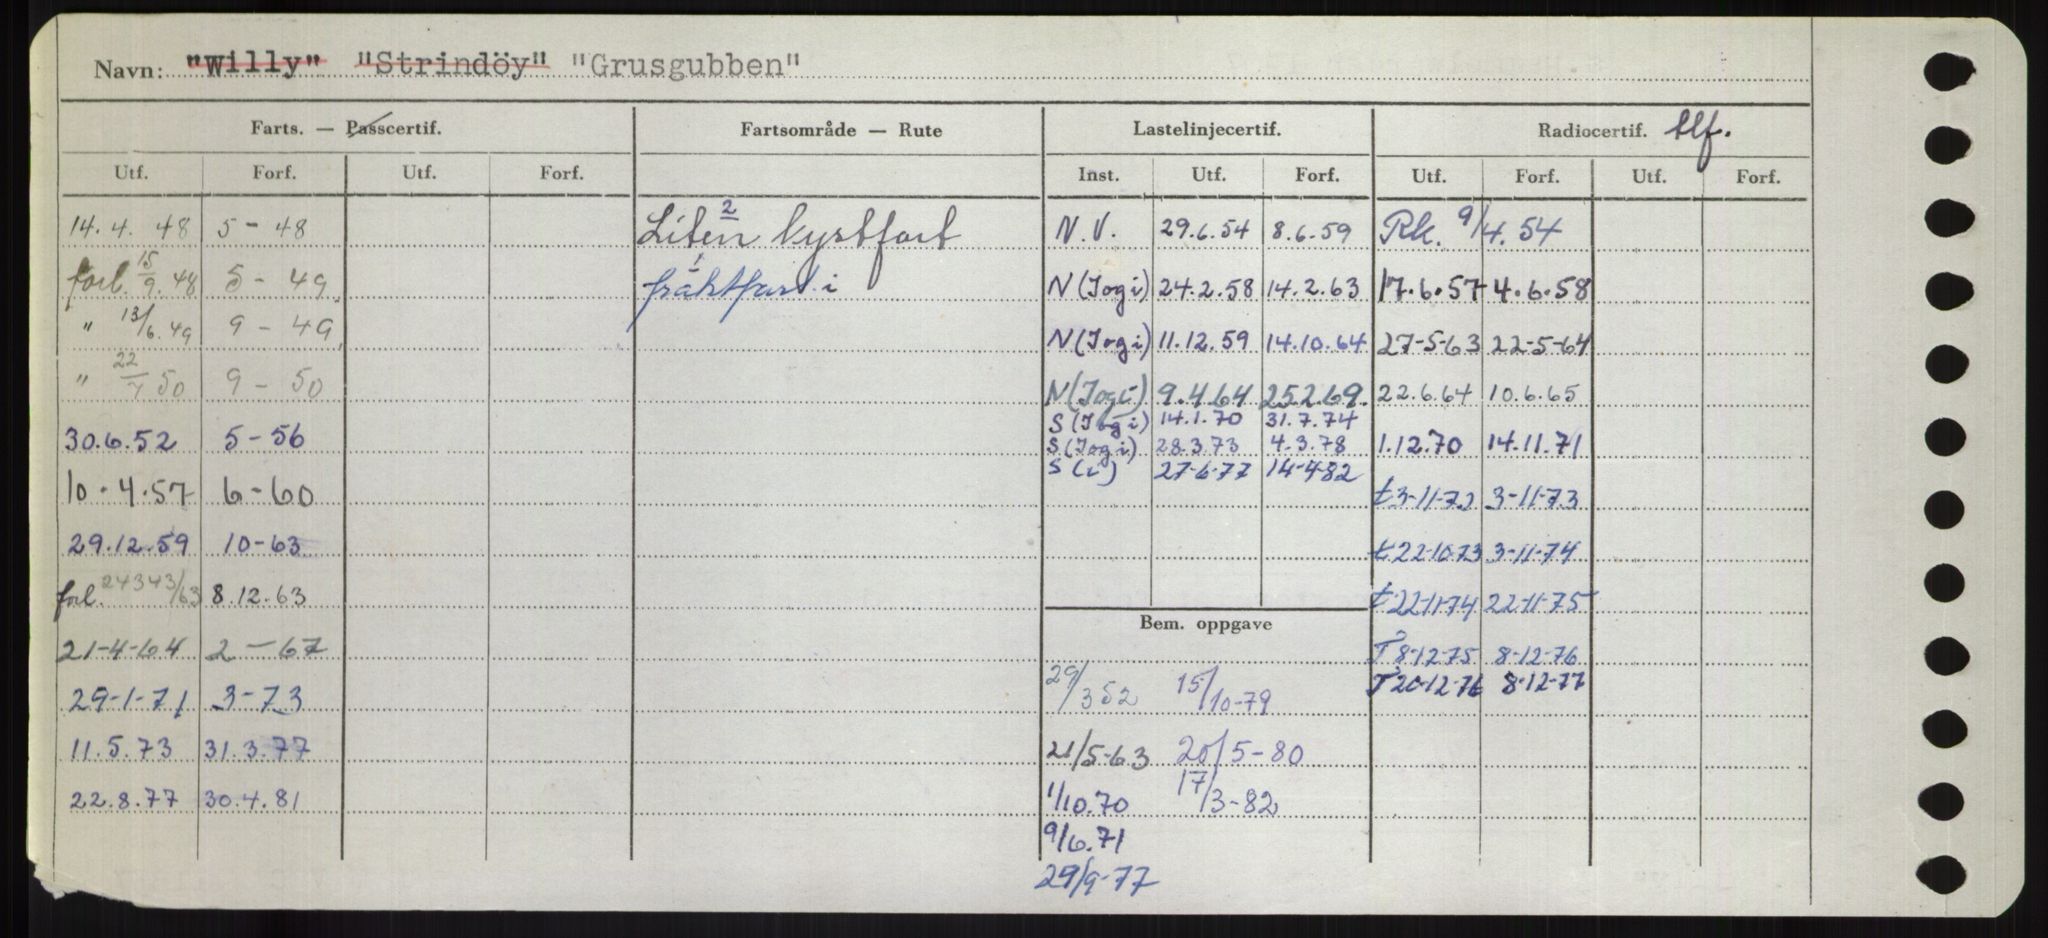 Navn: "Willy" "Strindöy" "Grusgubben"
Farts. — Passcertif. Fartsområde — Rute Lastelinjecertif. Radiocertif. tlf.
Utf. Forf. Utf. Forf. Inst. Utf. Forf. Utf. Forf. Utf. Forf.
14.4.48 5-48 Liten 2 kystfart N.V. 29.6.54 8.6.59 Rk. 9/4.54
forl. 15/9.48 5-49 fraktfart i N(Iogi) 24.2.58 14.2.63 17.6.57 4.6.58
" 13/6.49 9-49 N(Iogi) 11.12.59 14.10.64 27-5-63 22-5-64
" 22/7 50 9-50 N(Iogi) 9.4.64 25.2.69. 22.6.64 10.6.65
S(Iogi) 14.1.70 31.7.74
30.6.52 5-56 S(Iogi) 28.3.73 4.3.78 1.12.70 14.11.71
S(i) 27-6-77 14-4-82
10.4.57 6-60 t 3-11-72 3-11-73
29.12.59 10-63 t 22-10-73 3-11-74
forl. 24343/63 8.12.63 t 22-11-74 22-11-75
Bem. oppgave
21-4-64 2-67 T 8-12-75 8-12-76
29-1-71 3-73 29/3 52 15/10-79 T 20-12-76 8-12-77
11.5.73 31.3.77 21/5-63 20/5-80
22.8.77 30.4.81 1/10.70 17/3-82
9/6.71
29/9-77